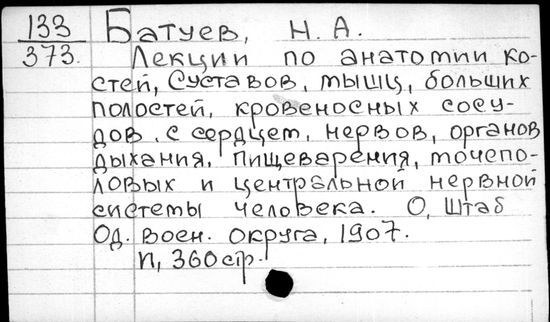 133 Батуев, Н. А.
373. Лекции по анатомии ко-
стей, суставов, мышц, больших
полостей, кровеносных сосу-
дов с сердцем, нервов, органов
дыхания, пищеварения, мочепо-
ловых и центральной нервной
системы человека. О, Штаб
Од. воен. округа, 1907.
п, 360 стр.